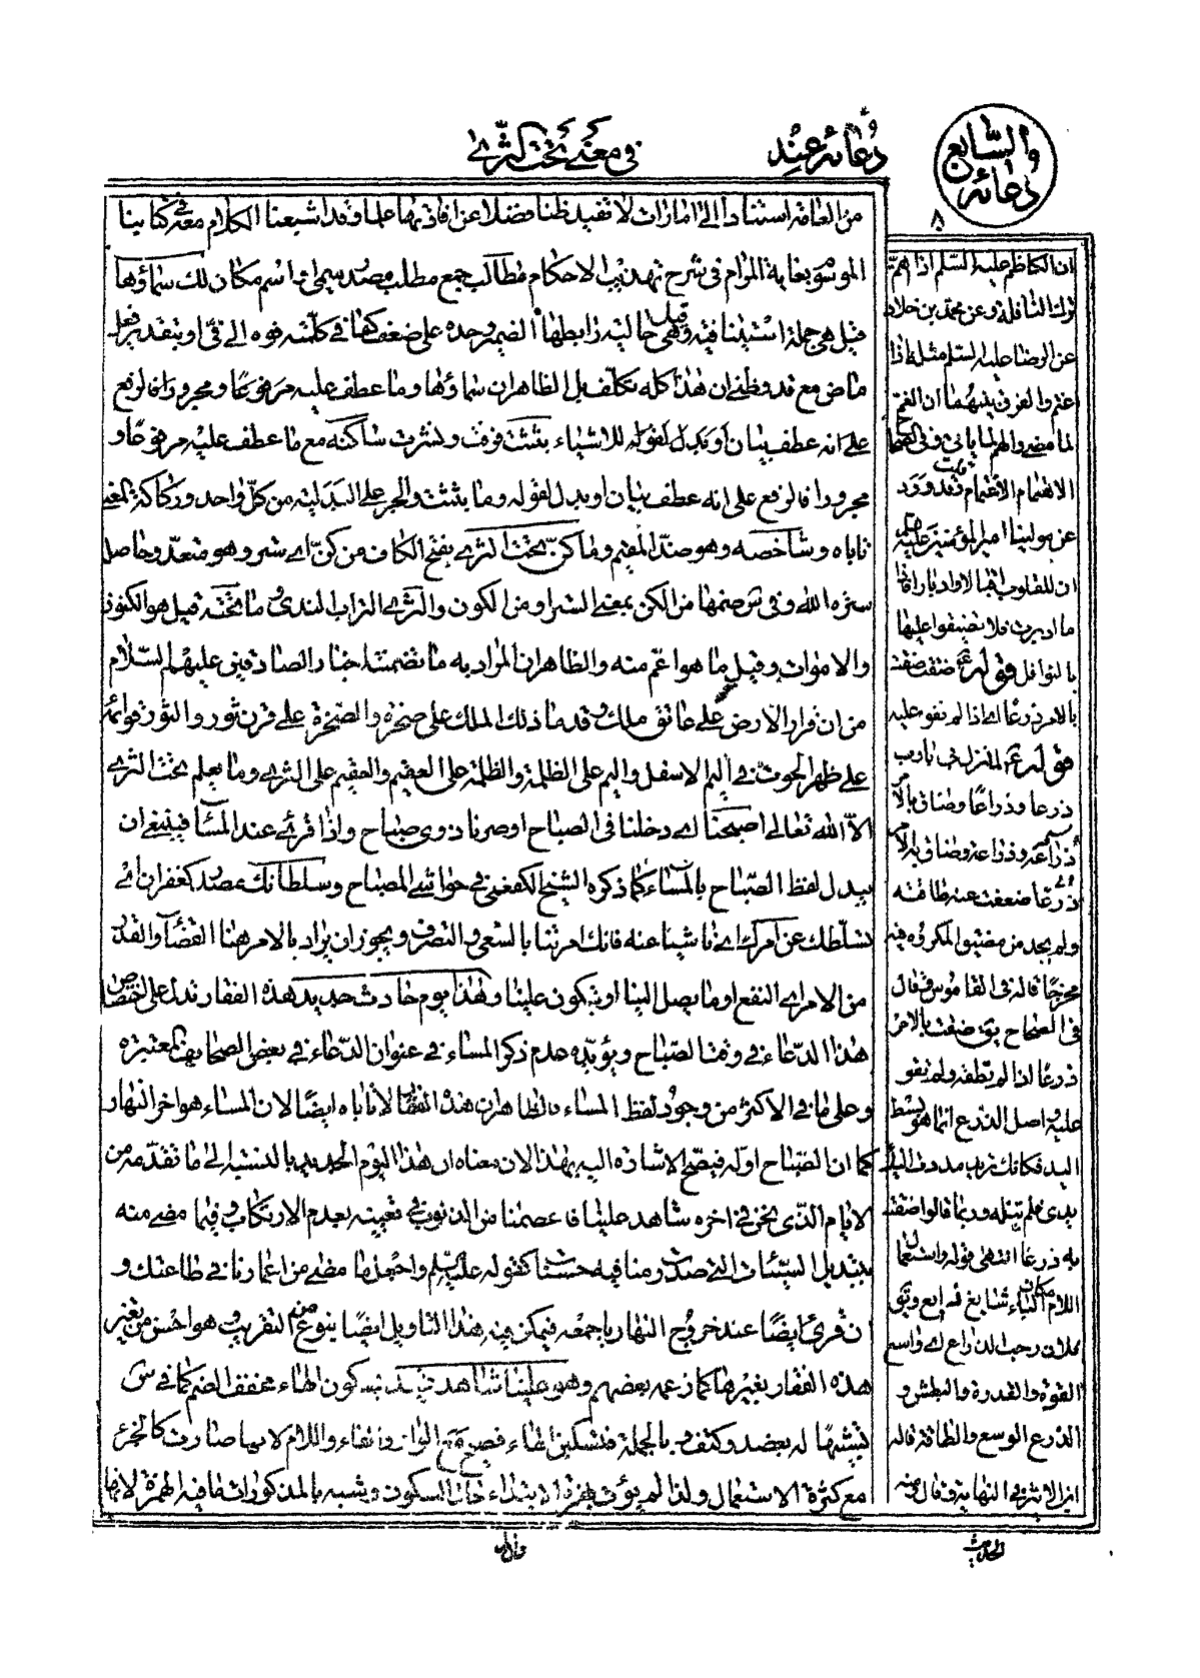 والسابع
دعائه
دعائه عند
في معنى تحت الثرى
٨
من العامة استنادا الى امارات لا تفيد ظنا فضلا عن افادتها علما وقد اشبعنا الكلام معه في كتابنا
الموسوم بغاية المرام في شرح تهذيب الاحكام مطالب جمع مطلب مصدر ميمي او اسم مكان لك سماؤها
قيل هي جملة استينافية وقيل هي حالية رابطها الضمير وحده على ضعف كما في كلمته فوه الى في او بتقدير فعل
ماض مع قد وظني ان هذا كله تكلف بل الظاهر ان سماؤها وما عطف عليه مرفوعا ومجرورا فالرفع
على انه عطف بيان او بدل لقوله للاشياء بثثت فرقت ونشرت ساكنه مع ما عطف عليه مرفوعا و
مجرورا فالرفع على انه عطف بيان او بدل لقوله وما بثثت والجر على البدلية من كل واحد وركاكة المعنى
تاباه وشاخصه وهو ضد المقيم وما كن تحت الثرى بفتح الكاف من كن اى ستر وهو متعد وحاصل
ستره الله وفي س ضمها من الكن بمعنى الستر او من الكون والثرى التراب الندى وما تحته قيل هو الكنوز
والاموات وقيل ما هو اعم منه والظاهر ان المراد به ما تضمنته اخبار الصادقين عليهم السلام
من ان قرار الارض على عاتق ملك وقدما ذلك الملك على صخرة والصخرة على قرن ثور والثور قوائمه
على ظهر الحوت في اليم الاسفل واليم على الظلمة والظلمة على العقيم والعقيم على الثرى وما يعلم تحت الثرى
الا الله تعالى اصبحنا اى دخلنا في الصباح او صرنا ذوى صباح واذا قرئ عند المساء فينبغي ان
يبدل لفظ الصباح بالمساء كما ذكره الشيخ الكفعمي في حواشي المصباح وسلطانك مصدر كغفران اى
تسلطك عن امرك اى ناشيا عنه فانك امرتنا بالسعى والتصرف ويجوز ان يراد بالامر هنا القضاء والقدر
من الامر اى النفع او ما يصل الينا او يتكون علينا وهذا يوم حادث جديد هذه الفقار تدل على اختصاص
هذا الدعاء في وقت الصباح ويؤيده عدم ذكر المساء في عنوان الدعاء في بعض الصحايف المعتبرة
وعلى ما في الاكثر من وجود لفظ المساء فالظاهر ان هذه الفقار لا تاباه ايضا لان المساء هو اخر النهار
كما ان الصباح اوله فيصح الاشارة اليه بهذا لان معناه ان هذا اليوم الجديد بالنسبة الى ما تقدمه من
الايام الذى نحن في اخره شاهد علينا فاعصمنا من الذنوب في بقيته بعدم الارتكاب وفيما مضى منه
بتبديل السيئات التي صدرت منا فيه حسنات كقوله عليه السلم واجعل ما مضى من اعمارنا في طاعتك و
ان قرئ ايضا عند خروج النهار باجمعه فيمكن فيه هذا التاويل ايضا بنوع من التقريب وهو احسن من تغيير
هذه الفقار بغيرها كما زعمه بعضهم وهو علينا شاهد عتيد بسكون الهاء مخفف الضم كما في س
تشبيها له بعضد وكتف وبالجملة فتسكين الهاء فصيح مع الواو والفاء واللام لانها صارت كالجزء
مع كثرة الاستعمال ولذا لم يؤت بهمزة الابتداء حال السكون ويشبه بالمذكورات ما فيه الهمزة لانها
ان الكاظم عليه السلم اذا اهتم
ترك النافلة وعن محمد بن خلاد
عن الرضا عليه السلم مثله اذا
اغتم والفرق بينهما ان الغم
لما مضى والهم لما ياتي وفي الصحاح
الاهتمام الاغتمام قلت وقد ورد
عن مولينا امير المؤمنين عليه
ان للقلوب اقبالا وادبارا فاذا
ما ادبرت فلا تضيفوا عليها
بالنوافل قوله ع ضقت ضقت
بالامر ذرعا اى اذا لم تقو عليه
قوله ع لما نزل بى يا رب
ذرعا وذراعا وضاق بالا
ذراعه وضاق به الا
ذرعا ضعفت عنه طاقته
ولم يجد من مضيق المكروه فيه
مخرجا قاله في القاموس وقال
في الصحاح يق ضقت بالامر
ذرعا اذا لم تطقه ولم تقو
عليه واصل الذرع انما هو بسط
اليد فكانك تريد مددت اليه
يدى فلم تنله وربما قالوا ضقت
به ذراعا انتهى قوله واستعمال
اللام مكان الباء شايع ذايع ويق
فلان رحب الذراع اى واسع
القوة والقدرة والبطش و
الذرع الوسع والطاقة قاله
ابن الاثير في النهاية وقال منه
الحديث